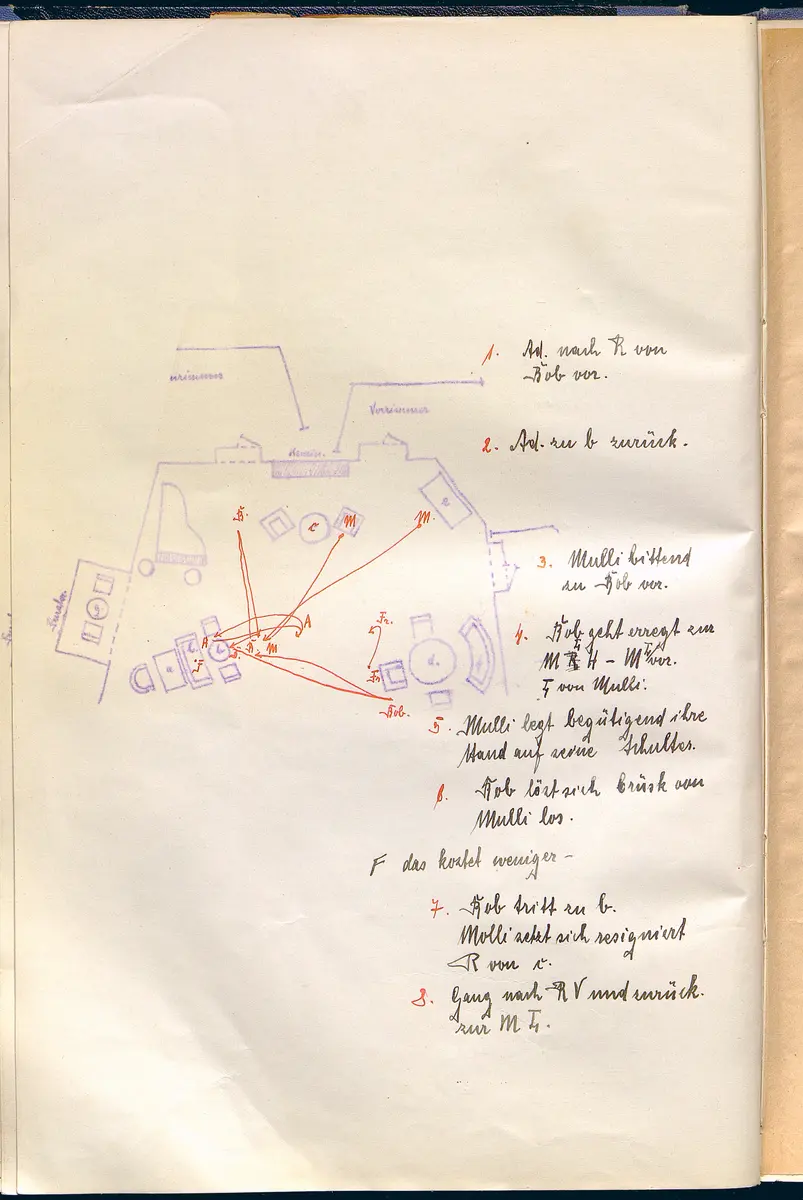 Vorzimmer
Kamin.
1. Ad. nach R von
Bob vor.
2. Ad. zu b zurück.
B.
c
M
M.
e
3. Mulli bittend
zu Bob vor.
4. Bob geht erregt zur
M 4 - M vor.
L von Mulli.
A
A
Fr.
Fr.
B.
M
a
d.
Bob.
5. Mulli legt begütigend ihre
Hand auf seine Schulter.
6. Bob löst sich brüsk von
Mulli los.
F das kostet weniger -
7. Bob tritt zu b.
Molli setzt sich resigniert
R von c.
8. Gang nach R V und zurück.
zur M L.